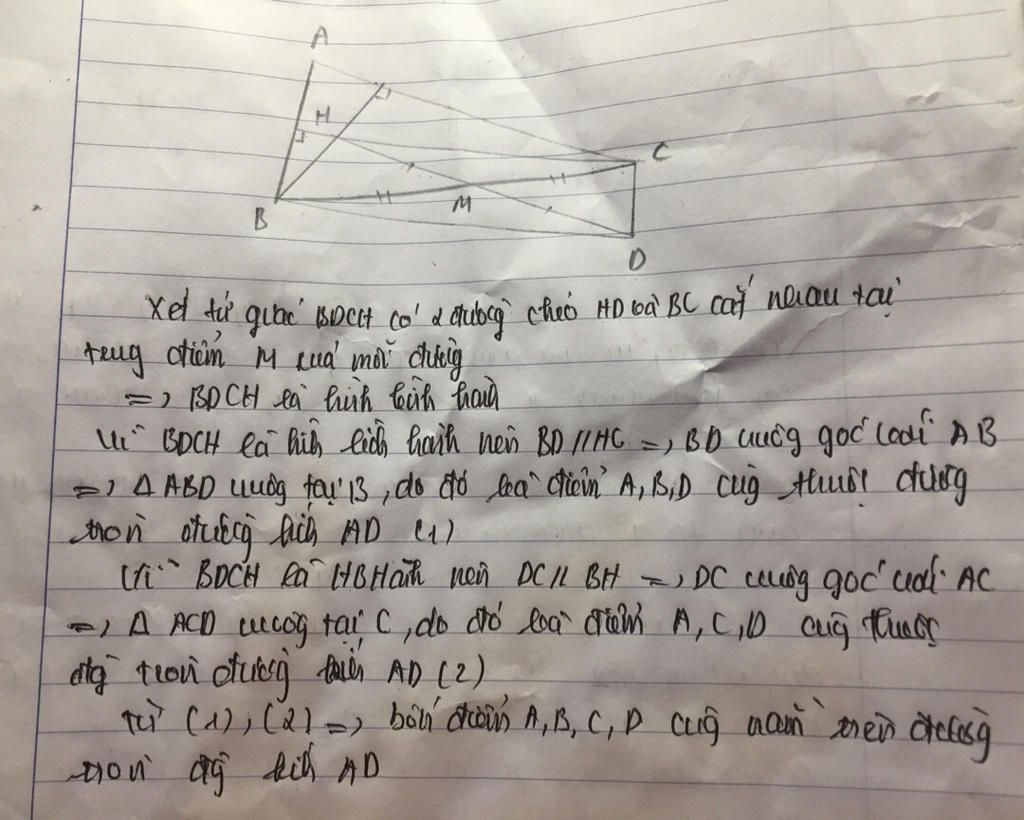 A
H
C
B
M
D
Xét tứ giác BDCH có 2 đường chéo HD và BC cắt nhau tại
trung điểm M của mỗi đường
=> BDCH là hình bình hành
Vì BDCH là hình bình hành nên BD // HC => BD vuông góc với AB
=> Δ ABD vuông tại B, do đó ba điểm A, B, D cùng thuộc đường
tròn đường kính AD (1)
Vì BDCH là HBHành nên DC // BH => DC vuông góc với AC
=> Δ ACD vuông tại C, do đó ba điểm A, C, D cùng thuộc
đg tròn đường kính AD (2)
Từ (1), (2) => bốn điểm A, B, C, D cùng nằm trên đường
tròn đg kính AD